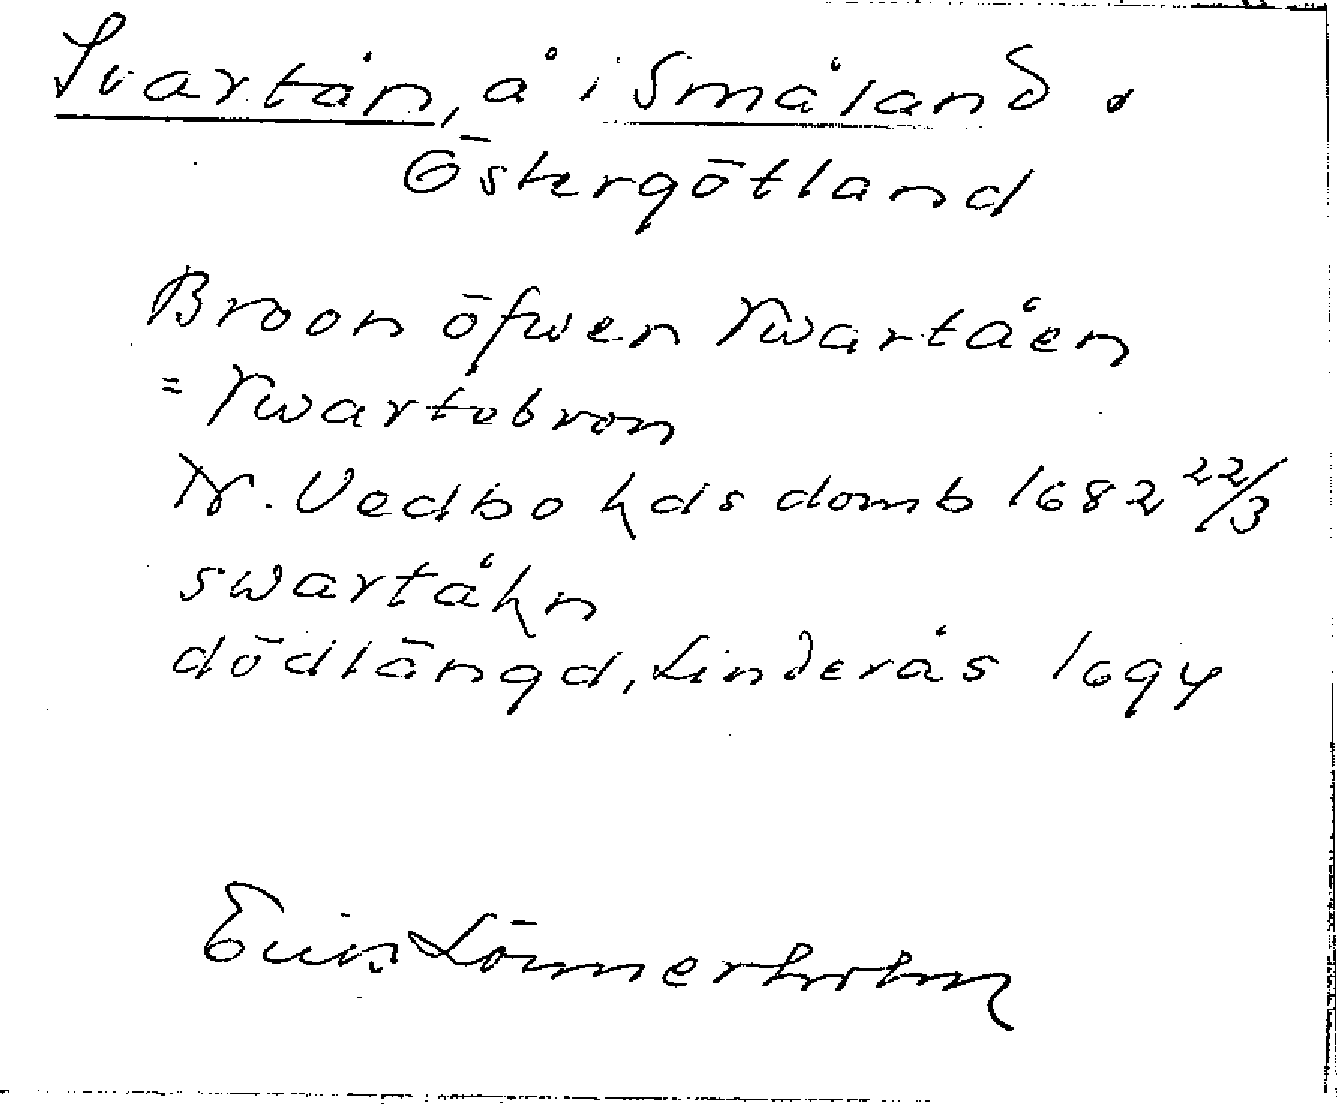 Svartån, å i Småland o
Östergötland
Broon öfwer Swartåen
= Swartebron
N. Vedbo hds domb 1682 22/3
swartåhn
dödlängd, Linderås 1694
Erik Lönnerholm